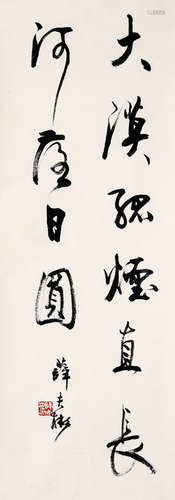 大漠孤煙直長
河落日圓
薛夫彬